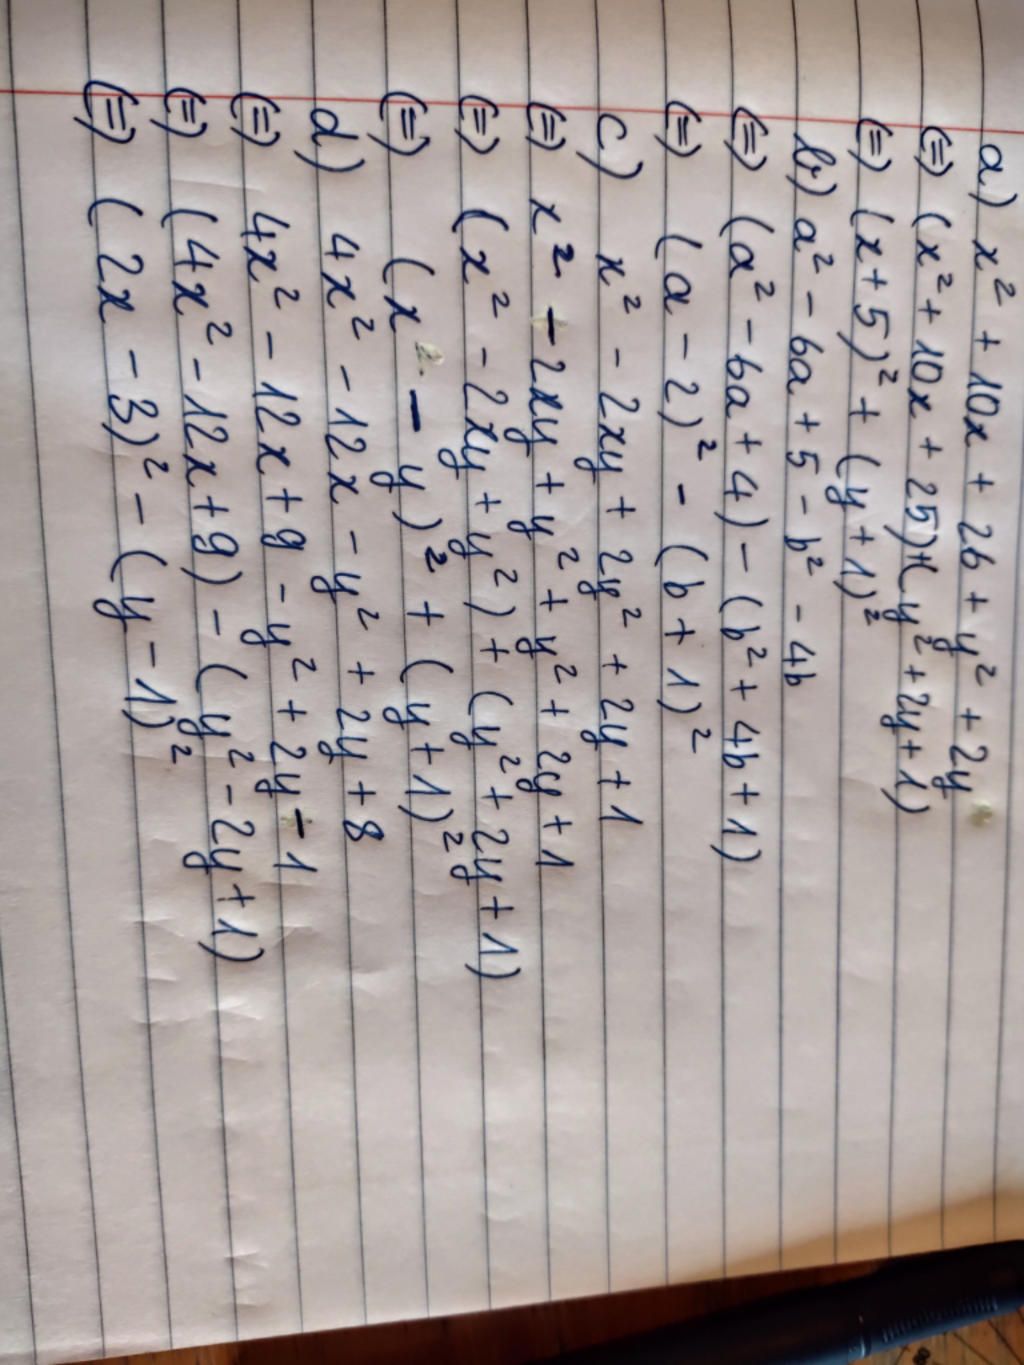 a) x² + 10x + 26 + y² + 2y
(=) (x² + 10x + 25) + (y² + 2y + 1)
(=) (x + 5)² + (y + 1)²
b) a² - 6a + 5 - b² - 4b
(=) (a² - 6a + 4) - (b² + 4b + 1)
(=) (a - 2)² - (b + 1)²
c) x² - 2xy + 2y² + 2y + 1
(=) x² - 2xy + y² + y² + 2y + 1
(=) (x² - 2xy + y²) + (y² + 2y + 1)
(=) (x - y)² + (y + 1)²
d) 4x² - 12x - y² + 2y + 8
(=) 4x² - 12x + 9 - y² + 2y - 1
(=) (4x² - 12x + 9) - (y² - 2y + 1)
(=) (2x - 3)² - (y - 1)²